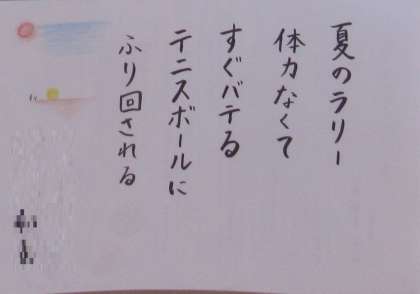 夏のラリー
体力なくて
すぐバテる
テニスボールに
ふり回される